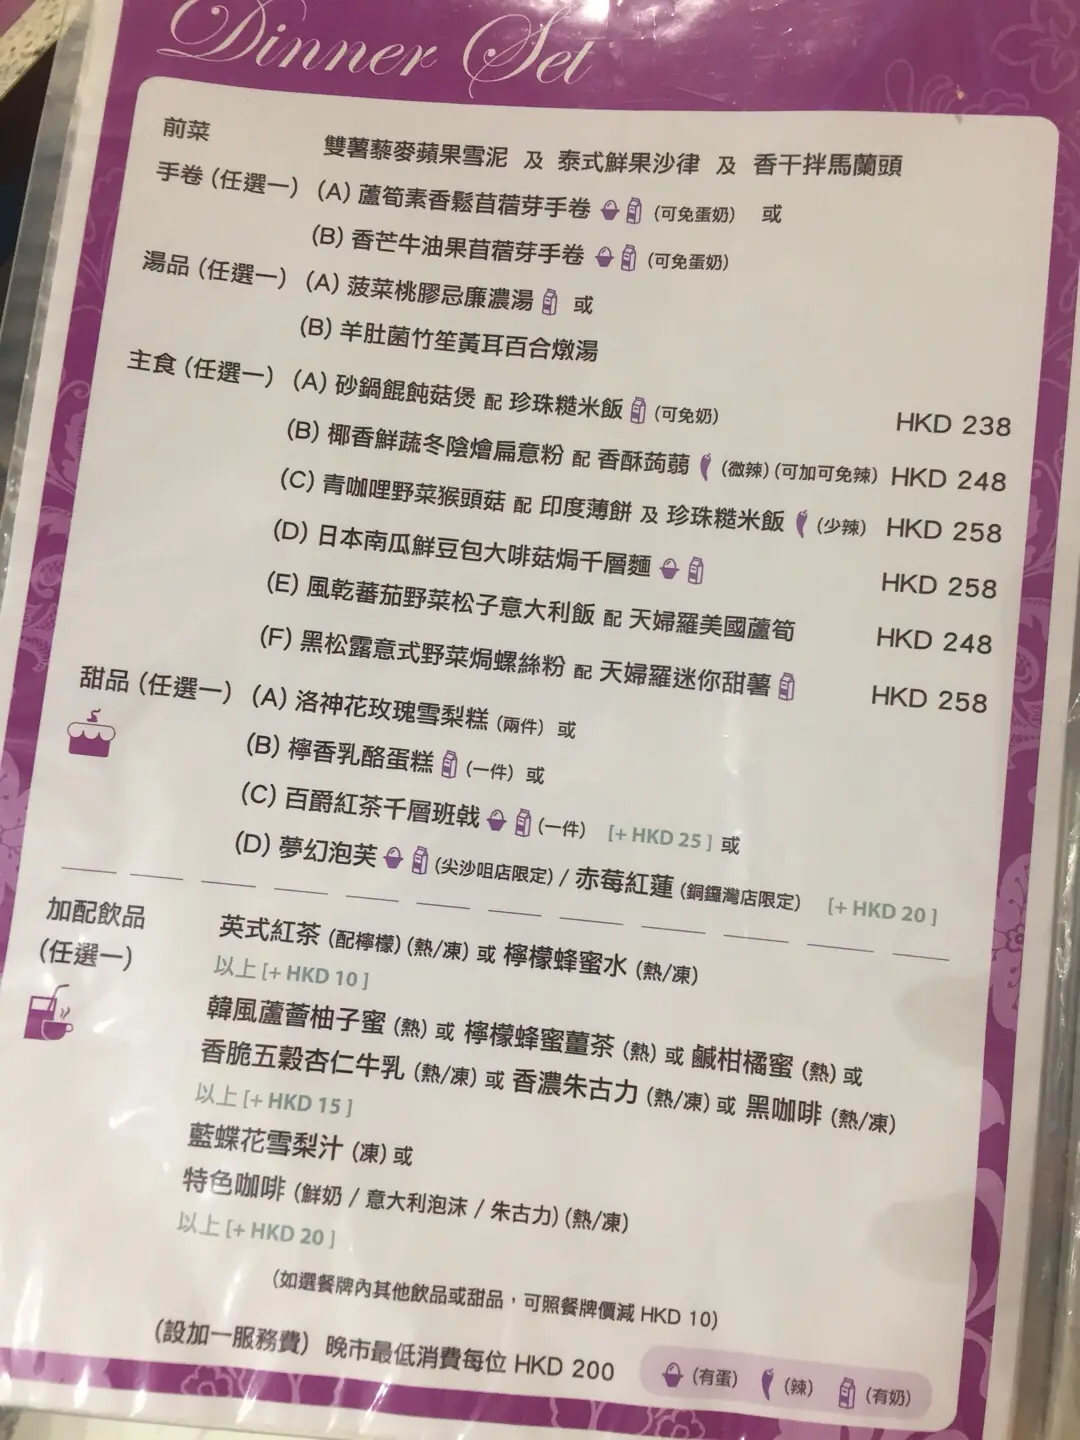 Dinner Set
前菜 雙薯藜麥蘋果雪泥 及 泰式鮮果沙律 及 香干拌馬蘭頭
手卷 (任選一) (A) 蘆筍素香鬆苜蓿芽手卷 (可免蛋奶) 或
(B) 香芒牛油果苜蓿芽手卷 (可免蛋奶)
湯品 (任選一) (A) 菠菜桃膠忌廉濃湯 或
(B) 羊肚菌竹笙黃耳百合燉湯
主食 (任選一) (A) 砂鍋餛飩菇煲 配 珍珠糙米飯 (可免奶) HKD 238
(B) 椰香鮮蔬冬陰燴扁意粉 配 香酥蒟蒻 (微辣) (可加可免辣) HKD 248
(C) 青咖哩野菜猴頭菇 配 印度薄餅 及 珍珠糙米飯 (少辣) HKD 258
(D) 日本南瓜鮮豆包大啡菇焗千層麵 HKD 258
(E) 風乾蕃茄野菜松子意大利飯 配 天婦羅美國蘆筍 HKD 248
(F) 黑松露意式野菜焗螺絲粉 配 天婦羅迷你甜薯 HKD 258
甜品 (任選一) (A) 洛神花玫瑰雪梨糕 (兩件) 或
(B) 檸香乳酪蛋糕 (一件) 或
(C) 百爵紅茶千層班戟 (一件) [+ HKD 25] 或
(D) 夢幻泡芙 (尖沙咀店限定) / 赤莓紅蓮 (銅鑼灣店限定) [+ HKD 20]
加配飲品 英式紅茶 (配檸檬) (熱/凍) 或 檸檬蜂蜜水 (熱/凍)
(任選一) 以上 [+ HKD 10]
韓風蘆薈柚子蜜 (熱) 或 檸檬蜂蜜薑茶 (熱) 或 鹹柑橘蜜 (熱) 或
香脆五穀杏仁牛乳 (熱/凍) 或 香濃朱古力 (熱/凍) 或 黑咖啡 (熱/凍)
以上 [+ HKD 15]
藍蝶花雪梨汁 (凍) 或
特色咖啡 (鮮奶 / 意大利泡沫 / 朱古力) (熱/凍)
以上 [+ HKD 20]
(如選餐牌內其他飲品或甜品，可照餐牌價減 HKD 10)
(設加一服務費) 晚市最低消費每位 HKD 200 (有蛋) (辣) (有奶)